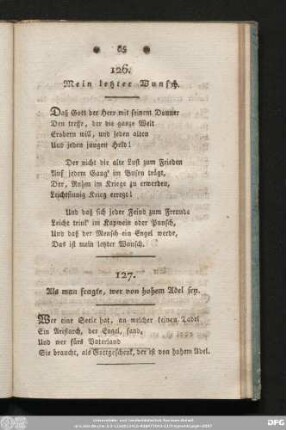 65
126.
Mein letzter Wunsch.
Daß Gott der Herr mit seinem Donner
Den treffe, der die ganze Welt
Erobern will, und jeden alten
Und jeden jungen Held!
Der nicht die alte Lust zum Frieden
Auf jedem Gang' im Busen trägt,
Der, Ruhm im Kriege zu erwerben,
Leichtsinnig Krieg erregt!
Und daß sich jeder Feind zum Freunde
Leicht trink' im Kapwein oder Punsch,
Und daß der Mensch ein Engel werde,
Das ist mein letzter Wunsch.
127.
Als man fragte, wer von hohem Adel sey.
Wer eine Seele hat, an welcher keinen Tadel
Ein Aristarch, der Engel, fand,
Und wer fürs Vaterland
Sie braucht, als Gottgeschenk, der ist von hohem Adel.
DFG